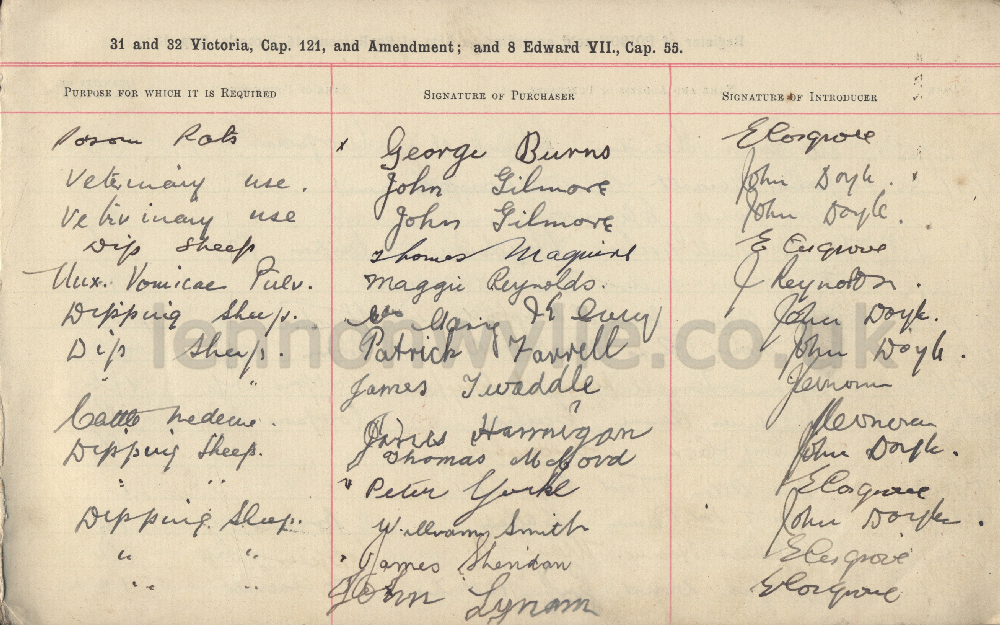 31 and 32 Victoria, Cap. 121, and Amendment; and 8 Edward VII., Cap. 55.
PURPOSE FOR WHICH IT IS REQUIRED SIGNATURE OF PURCHASER SIGNATURE OF INTRODUCER
Poson Rats x George Burns E Cosgrove
Veterinary use. John Gilmore John Doyle.
Vetirinary use John Gilmore John Doyle.
Dip Sheep Thomas Maguire E Cosgrove
Nux. Vomicae Pulv. Maggie Reynolds. J Reynolds.
Dipping Sheep. John Doyle.
Dip Sheep. Patrick Farrell John Doyle.
" " James Twaddle
Cattle James Hannigan
Dipping Sheep. Thomas McCord John Doyle.
" " Peter Yorke E Cosgrove
Dipping Sheep. William Smith John Doyle.
" " James Sheridan E Cosgrove
" " John Lynam E Cosgrove
lennonwylie.co.uk